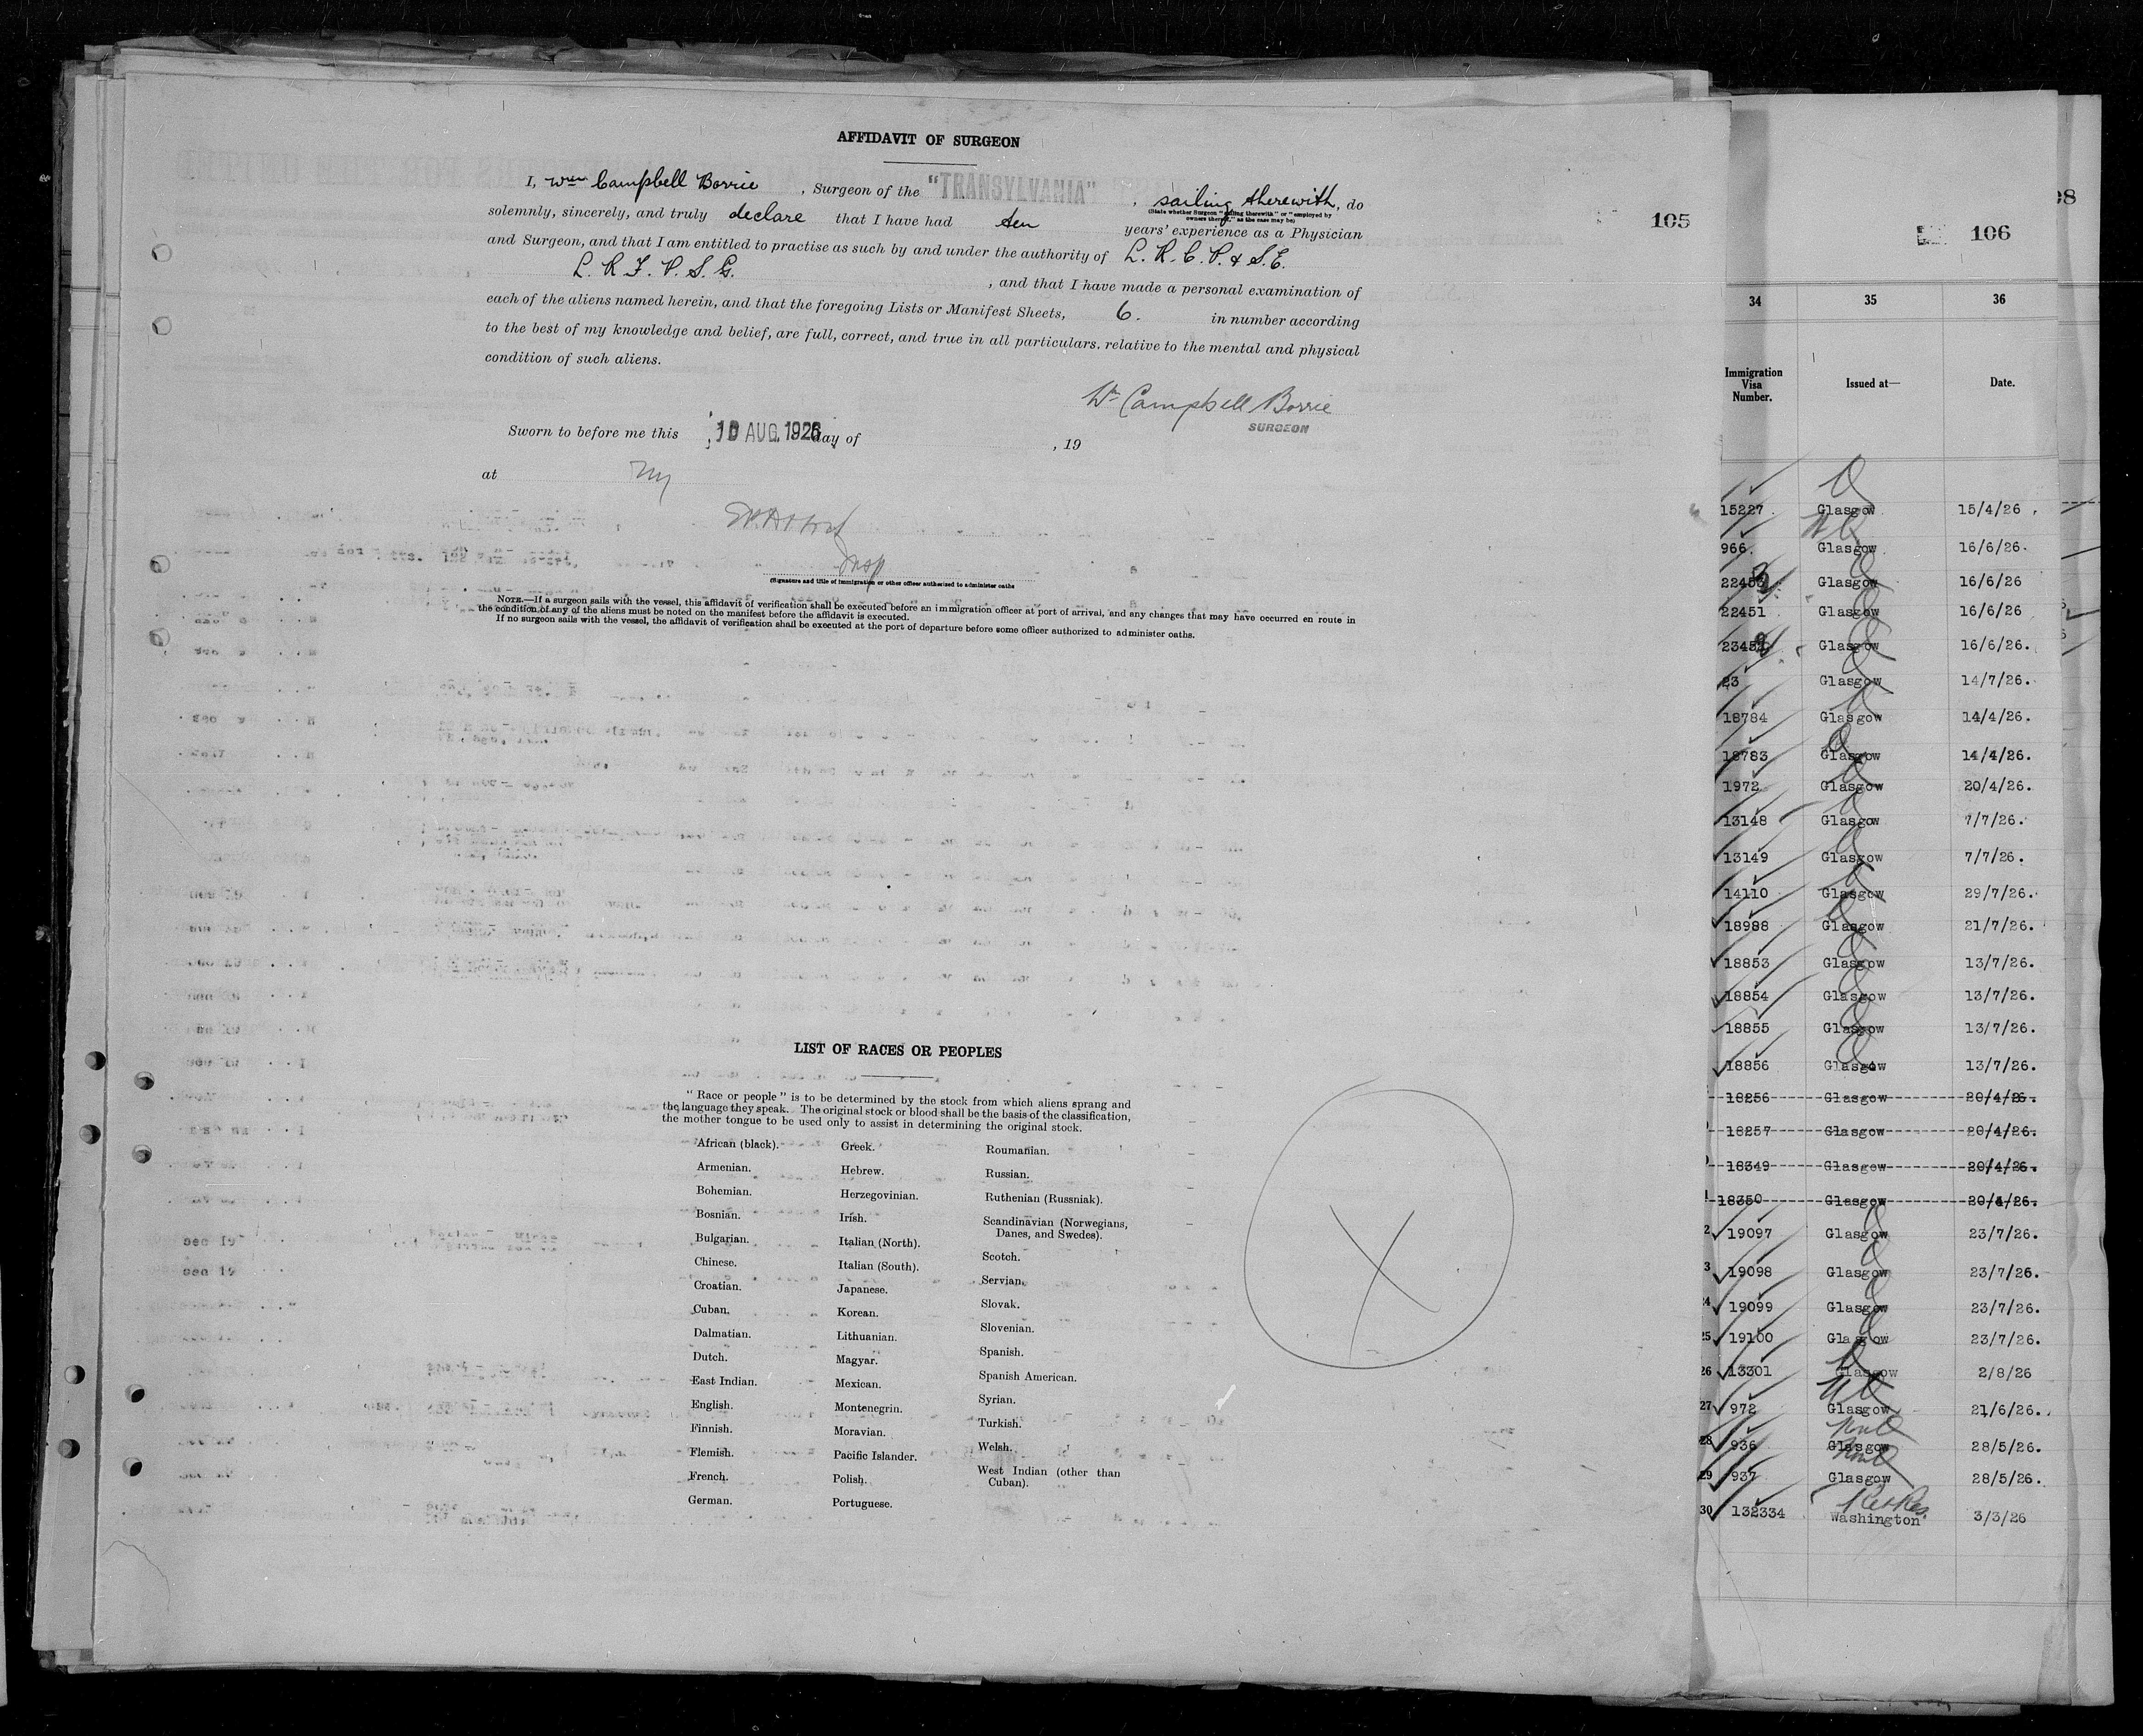 AFFIDAVIT OF SURGEON
I, Wm Campbell Borrie, Surgeon of the "TRANSYLVANIA", sailing therewith, do
(State whether Surgeon "sailing therewith" or "employed by
owners thereof," as the case may be)
solemnly, sincerely, and truly declare that I have had ten years' experience as a Physician
and Surgeon, and that I am entitled to practise as such by and under the authority of L.R.C.P. & S.E.
L.R.F.P.S.G., and that I have made a personal examination of
each of the aliens named herein, and that the foregoing Lists or Manifest Sheets, 6. in number according
to the best of my knowledge and belief, are full, correct, and true in all particulars. relative to the mental and physical
condition of such aliens.
Wm Campbell Borrie
SURGEON
Sworn to before me this 10 AUG. 1926 day of , 19
at NY
Insp
(Signature and title of immigration or other officer authorized to administer oaths
NOTE.—If a surgeon sails with the vessel, this affidavit of verification shall be executed before an immigration officer at port of arrival, and any changes that may have occurred en route in
the condition of any of the aliens must be noted on the manifest before the affidavit is executed.
If no surgeon sails with the vessel, the affidavit of verification shall be executed at the port of departure before some officer authorized to administer oaths.
LIST OF RACES OR PEOPLES
"Race or people" is to be determined by the stock from which aliens sprang and
the language they speak. The original stock or blood shall be the basis of the classification,
the mother tongue to be used only to assist in determining the original stock.
African (black).
Armenian.
Bohemian.
Bosnian.
Bulgarian.
Chinese.
Croatian.
Cuban.
Dalmatian.
Dutch.
East Indian.
English.
Finnish.
Flemish.
French.
German.
Greek.
Hebrew.
Herzegovinian.
Irish.
Italian (North).
Italian (South).
Japanese.
Korean.
Lithuanian.
Magyar.
Mexican.
Montenegrin.
Moravian.
Pacific Islander.
Polish.
Portuguese.
Roumanian.
Russian.
Ruthenian (Russniak).
Scandinavian (Norwegians,
Danes, and Swedes).
Scotch.
Servian.
Slovak.
Slovenian.
Spanish.
Spanish American.
Syrian.
Turkish.
Welsh.
West Indian (other than
Cuban).
105
106
34 35 36
Immigration
Visa
Number.
Issued at—
Date.
15227 Glasgow 15/4/26
966 Glasgow 16/6/26.
Glasgow 16/6/26
22451 Glasgow 16/6/26
Glasgow 16/6/26.
23 Glasgow 14/7/26.
18784 Glasgow 14/4/26.
18783 Glasgow 14/4/26.
1972 Glasgow 20/4/26.
13148 Glasgow 7/7/26.
13149 Glasgow 7/7/26.
14110 Glasgow 29/7/26.
18988 Glasgow 21/7/26.
18853 Glasgow 13/7/26.
18854 Glasgow 13/7/26.
18855 Glasgow 13/7/26.
18856 Glasgow 13/7/26.
18256 Glasgow 20/4/26.
18257 Glasgow 20/4/26.
18349 Glasgow 20/4/26.
18350 Glasgow 20/4/26.
2 19097 Glasgow 23/7/26.
3 19098 Glasgow 23/7/26.
24 19099 Glasgow 23/7/26.
25 19100 Glasgow 23/7/26.
26 13301 Glasgow 2/8/26
27 972 Glasgow 21/6/26.
28 936 Glasgow 28/5/26.
29 937 Glasgow 28/5/26.
30 132334 Washington 3/3/26